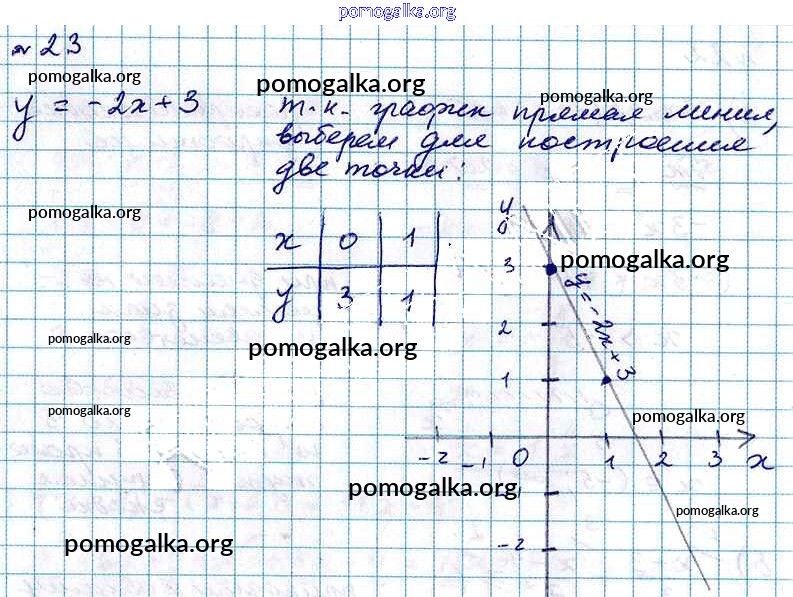 pomogalka.org
№ 23
pomogalka.org
pomogalka.org
pomogalka.org
y = -2x + 3
т.к. график прямая линия,
выберем для построения
две точки:
pomogalka.org
x 0 1
y 3 1
y
3
pomogalka.org
y = -2x + 3
2
1
pomogalka.org
pomogalka.org
pomogalka.org
pomogalka.org
-2 -1 0 1 2 3 x
pomogalka.org
-1
pomogalka.org
pomogalka.org
-2